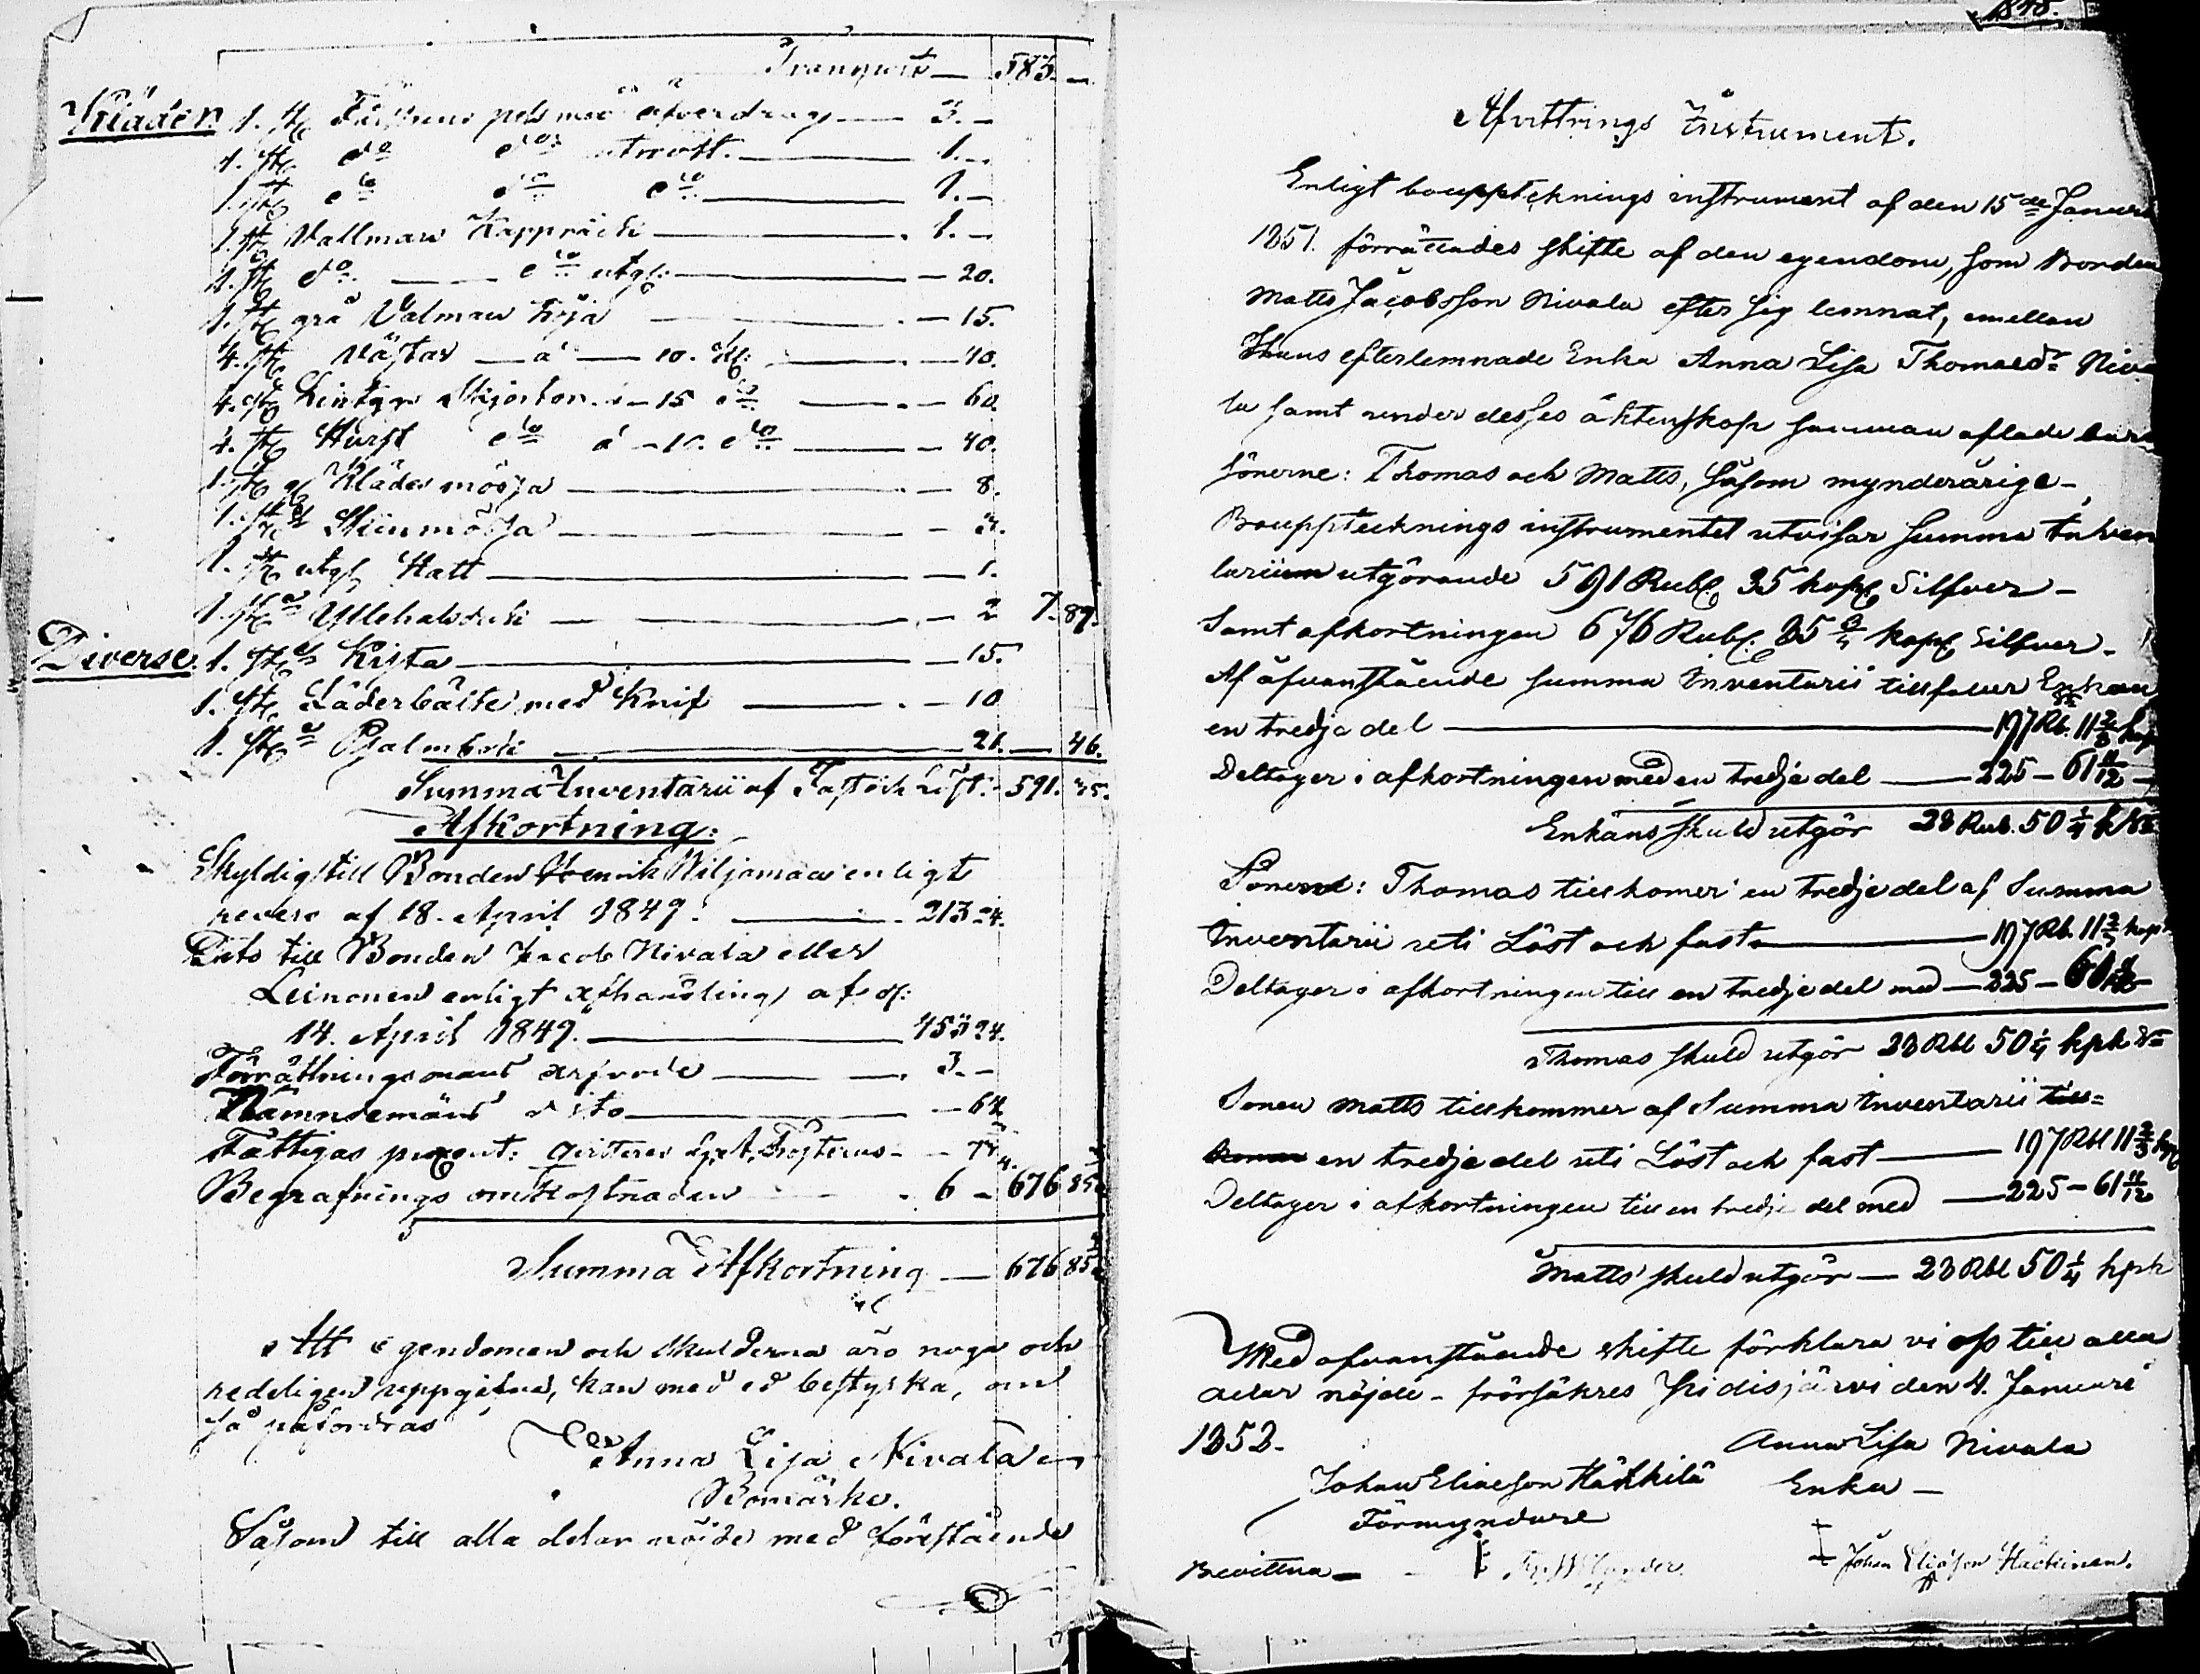 Transport — 583. —
Kläder. 1. st. Fårskins pels med öfverdrag — 3. —
1. st. do do utnött. — 1. —
1. st. do do do — 1. —
1. st. Vallmans Kappråck — 1. —
1. st. do — do utgl: — 20.
1. st. grå Valmans tröja — 15.
4. st. Västar — à — 10. K: — 40.
4. st. Lintygs Skjortor à — 15 do — 60.
4. st. Hurst do à — 10. do — 40.
1. st. Klädes mössa — 8.
1. st. Skinmössa — 3.
1. st. utgl. Hatt — 1.
1. st. Yllehalsduk — 2 7. 89.
Diverse. 1. st. Kista — 15.
1. st. Läderbälte med Knif — 10
1. st. Psalmbok — 21. — 46.
Summa Inventarii af Fast och Löst: 591. 35.
Afkortning:
Skyldig till Bonden Henrik Wiljamaa enligt
revers af 18. April 1849. — 213 24.
Dito till Bonden Jacob Nivala eller
Leinonen enligt afhandling af d:
14. April 1849. — 453 24.
Förrättningsmans arfvode — 3. —
Nämndemäns dito — 64
Fattigas procent:
Begrafnings omkostnaden — 6 — 676 85
Summa Afkortning — 676 85
Att egendomen och skulderna äro noga och
redeligen uppgifna, kan med ed bestyrka, om
så påfordras
Anna Lisa Nivala
Bomärke.
Såsom till alla delar nöjde med förestående
1848.
Afvittrings Instrument.
Enligt bouppteknings instrument af den 15de Januari
1851. förrättades skifte af den egendom, som Bonden
Matts Jacobsson Nivala efter sig lemnat, emellan
Thuns efterlemnade Enka Anna Lisa Thomasdr Niva
la samt under desses äktenskap samman aflade barn
sönerne: Thomas och Matts, såsom mynderårige —
Bouppteknings instrumentet utvisar Summa Inhven
tarium utgörande 591 Rub. 35 kop. Silfver —
Samt afkortningen 676 Rub. 85 3/4 kop. Silfver.
Af åfvanstående summa Inventarii tillfaller Enkan
en tredje del — 197 Rb. 11 2/3 kop
Deltager i afkortningen med en tredje del — 225 — 61 11/12 —
Enkans skuld utgör 28 Rub. 50 1/4 k
Sönerne: Thomas tillkomer en tredje del af Summa
Inventarii uti Löst och fast — 197 Rb. 11 2/3 kop
Deltager i afkortningen till en tredje del med — 225 — 61 11/12 —
Thomas skuld utgör 28 Rbl 50 1/4 kpk
Sonen Matts tillkommer af Summa Inventarii till=
komer en tredje del uti Löst och fast — 197 Rbl 11 2/3 kpk
Deltager i afkortningen till en tredje del med — 225 — 61 11/12
Matts' skuld utgör — 28 Rbl 50 1/4 kpk
Med ofvanstående skifte förklara vi oss till alla
delar nöjde — försäkres Pidisjärvi den 4. Januari
1852.
Anna Lisa Nivala
Enka —
Johan Eliasson Häkkilä
Förmyndare
Bevittna —
Johan Eliasson